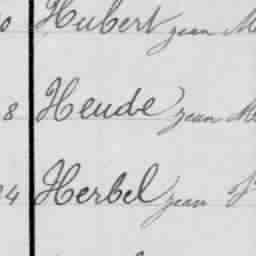 0 Hubert jean M
8 Heude jean M
4 Herbel jean